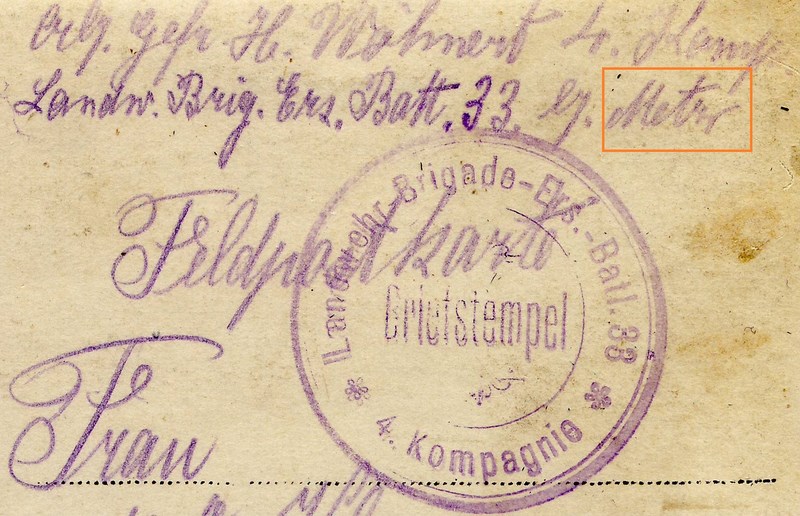 Gefr. H. Wöhnert 4. Komp
Landw. Brig. Ers. Batt. 33. Metz
Feldpostkarte
Landwehr-Brigade-Ers.-Batl. 33
Briefstempel
4. Kompagnie
Frau